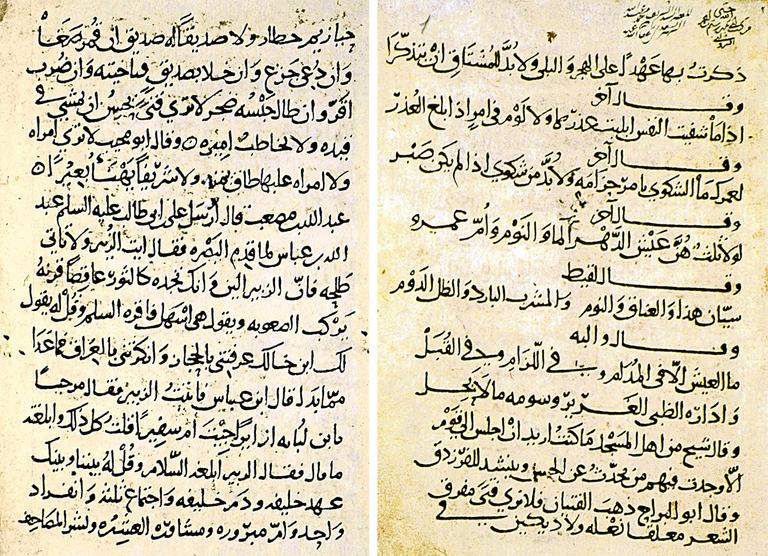 ذكرت بها عهدا على الهجر والبلى ولا بد للمشتاق ان يتذكرا
وقال آخر
اذا ما شفيت النفس ابليت عذرها ولا لوم في امر اذا بلغ العذر
وقال آخر
لعمرك ما الشكوى بامر حزامه ولا بد من شكوى اذا لم يكن صبر
وقال آخر
لولا ثلث هن عيش الدهر الما والنوم وام عمرو
وقال لقيط
سيان هذا والعناق والنوم والمشرب البارد والظل الدوم
وقال والبه
ما العيش الا في المدام وفي اللزام وفي القبل
وادارة الظبي الغرير وسومه ما لا يحل
وقال شيخ من اهل المسجد ما كنت اريد ان اجلس الى قوم
الا وجدت فيهم من يحدث عن الحسن وينشد للفرزدق
وقال ابو المراج ذهب الفتيان فلا ترى فتى مفرق
الشعر معلقا نعله ولا ديكين في
خطار ولا صديقا له صديق ان قمر
وان دعي جزع وان خلا بصديق وان ضرب
اقر وان طال حبسه ضجر لا ترى فتى يحسن ان يمشي في
قيده ولا يخاطب اميره وقال ابو لا ترى امراه
ولا امراه عليها طاق ولا شريفا يعير
عبد الله بن مصعب قال ارسل علي بن ابي طالب عليه السلم عبد
الله بن عباس لما قدم البصره فقال ايت الزبير ولا تاتي
طلحه فان الزبير الين وانك تجده كالثور عاقصا قرنه
يركب الصعوبه ويقول هي اسهل فاقره السلم وقل له يقول
لك ابن خالك عرفتني بالحجاز وانكرتني بالعراق فما عدا
مما بدا لك قال ابن عباس فاتيت الزبير فقال مرحبا
يابن لبابه ازايرا جيت ام سفيرا قلت كل ذلك وابلغته
ما قال فقال الزبير ابلغه السلام وقل له بيننا وبينك
عهد خليفه ودم خليفه واجتماع ثلثه وانفراد
واحد وام مبروره ومشاوره العشيره ونشر المصاحف